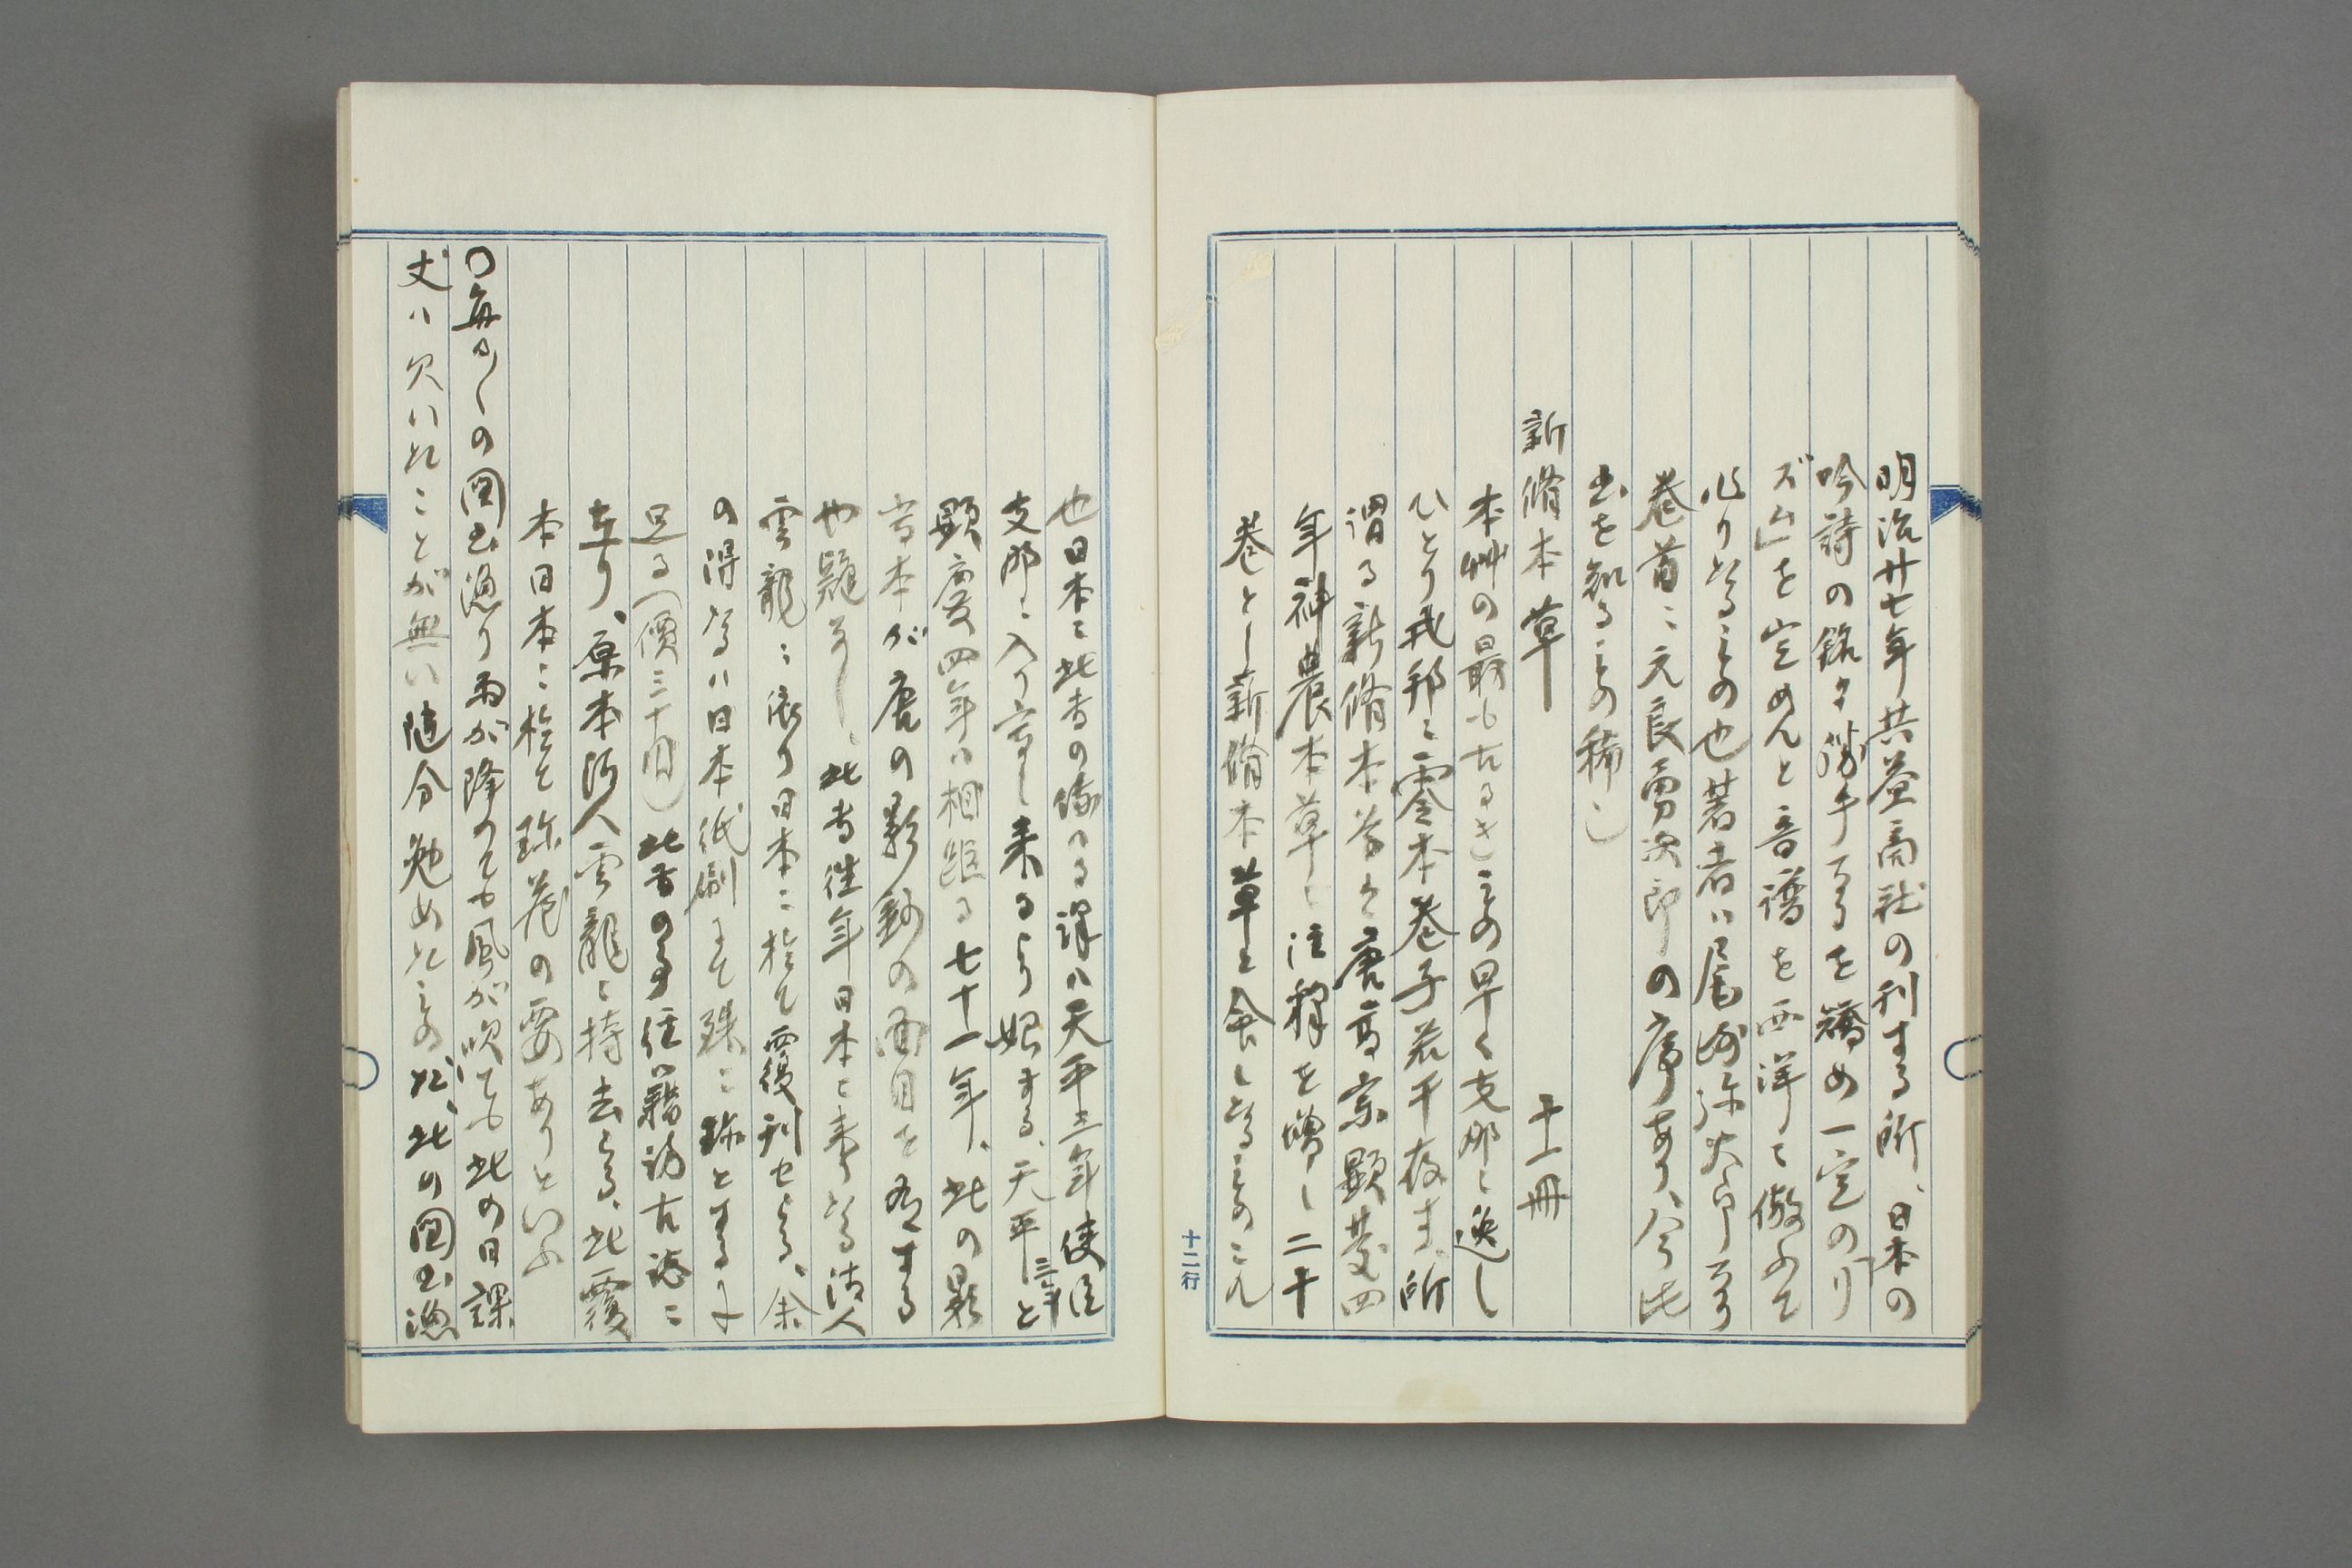 明治廿七年共益商社の刊する所、日本の
吟詩の銘々勝手なるを矯め一定の「リ
ズム」を定めんと音譜を西洋に倣ふて
作りたるもの也著者ハ尾崎弥太郎なり
巻首ニ元良勇次郎の序あり、今此
書を知るもの稀也
新脩本草　十一冊
本艸の最も古るきもの早く支那ニ逸し
ひとり我邦ニ零本巻子若干存す、所
謂る新脩本草ハ唐高宗顕慶四
年神農本草ニ注釋を増し二十
巻とし新脩本草と命したるものこれ
十二行
也日本ニ此書の傳へる譯ハ天平三年使臣
支那ニ入り寫し来るより始まる、天平三年と
顕慶四年ハ相距る七十一年、此の影
寫本が唐の影鈔の面目を存する
や疑なし、此書往年日本ニ来りたる清人
雲龍ニ依り日本ニ於て覆刊せらる、余
の得たるハ日本紙刷にて殊ニ珍とするに
足る（價三十円）此書の事経籍訪古志ニ
在り、原本清人雲龍ニ持去らる、此覆
本日本ニ於て珍蔵の要ありといふ
〇毎日〱の図書漁り雨が降っても風が吹ても此の日課
丈ハ欠いたことが無い随分勉めたものだ、此の図書漁